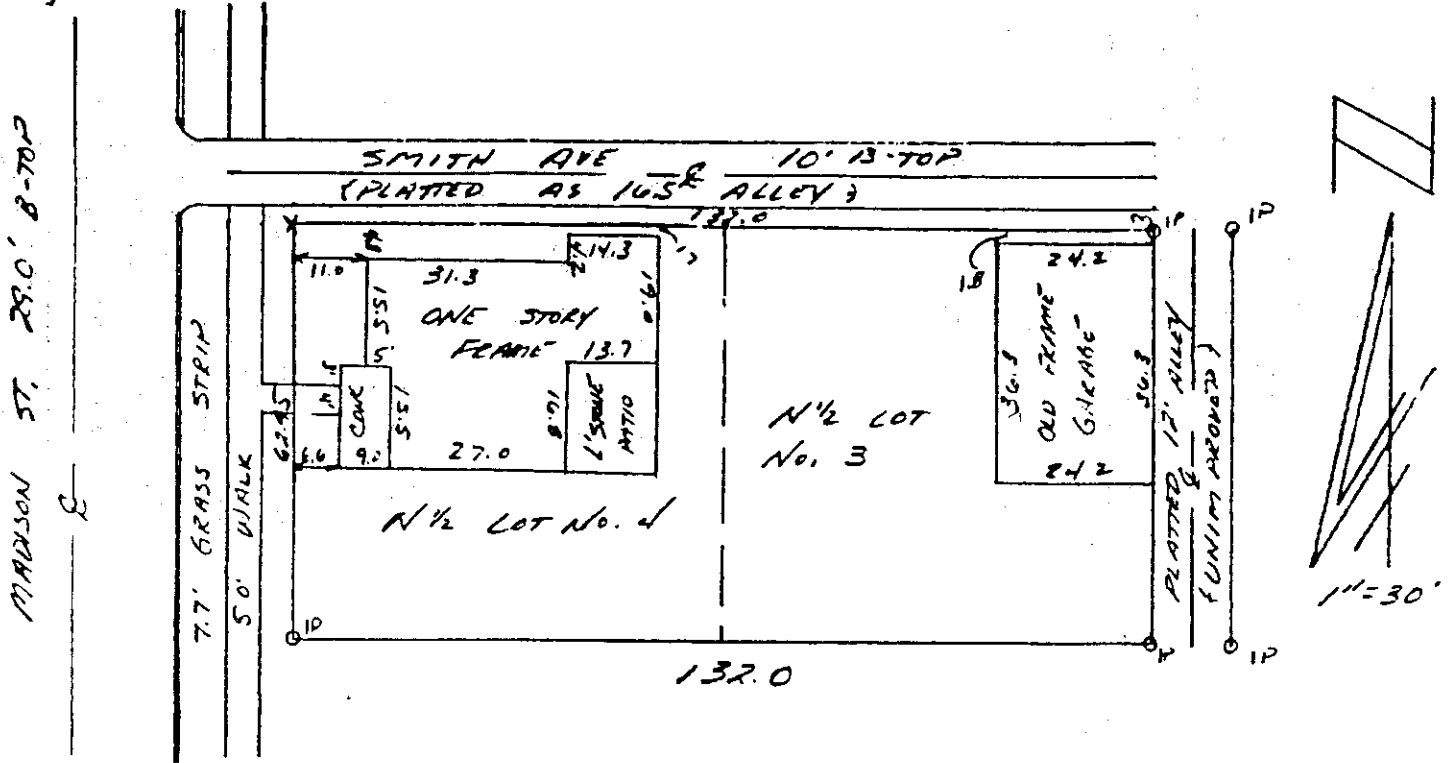 MADISON ST. 29.0' B-TOP
℄
7.7' GRASS STRIP
5.0' WALK
SMITH AVE ℄ 10' B-TOP
(PLATTED AS 16.5' ALLEY)
132.0
IP
IP
11.0
31.3
14.3
15.5
19.0
ONE STORY
FRAME
13.7
62.45
CONC
15.5
6.6
9.0
27.0
16.8
STONE
PATIO
N 1/2 LOT No. 4
N 1/2 LOT
No. 3
1.8
24.2
36.3
OLD FRAME
GARAGE
36.3
24.2
PLATTED 12' ALLEY
℄
(UNIMPROVED)
N
1"=30'
IP
132.0
IP
IP